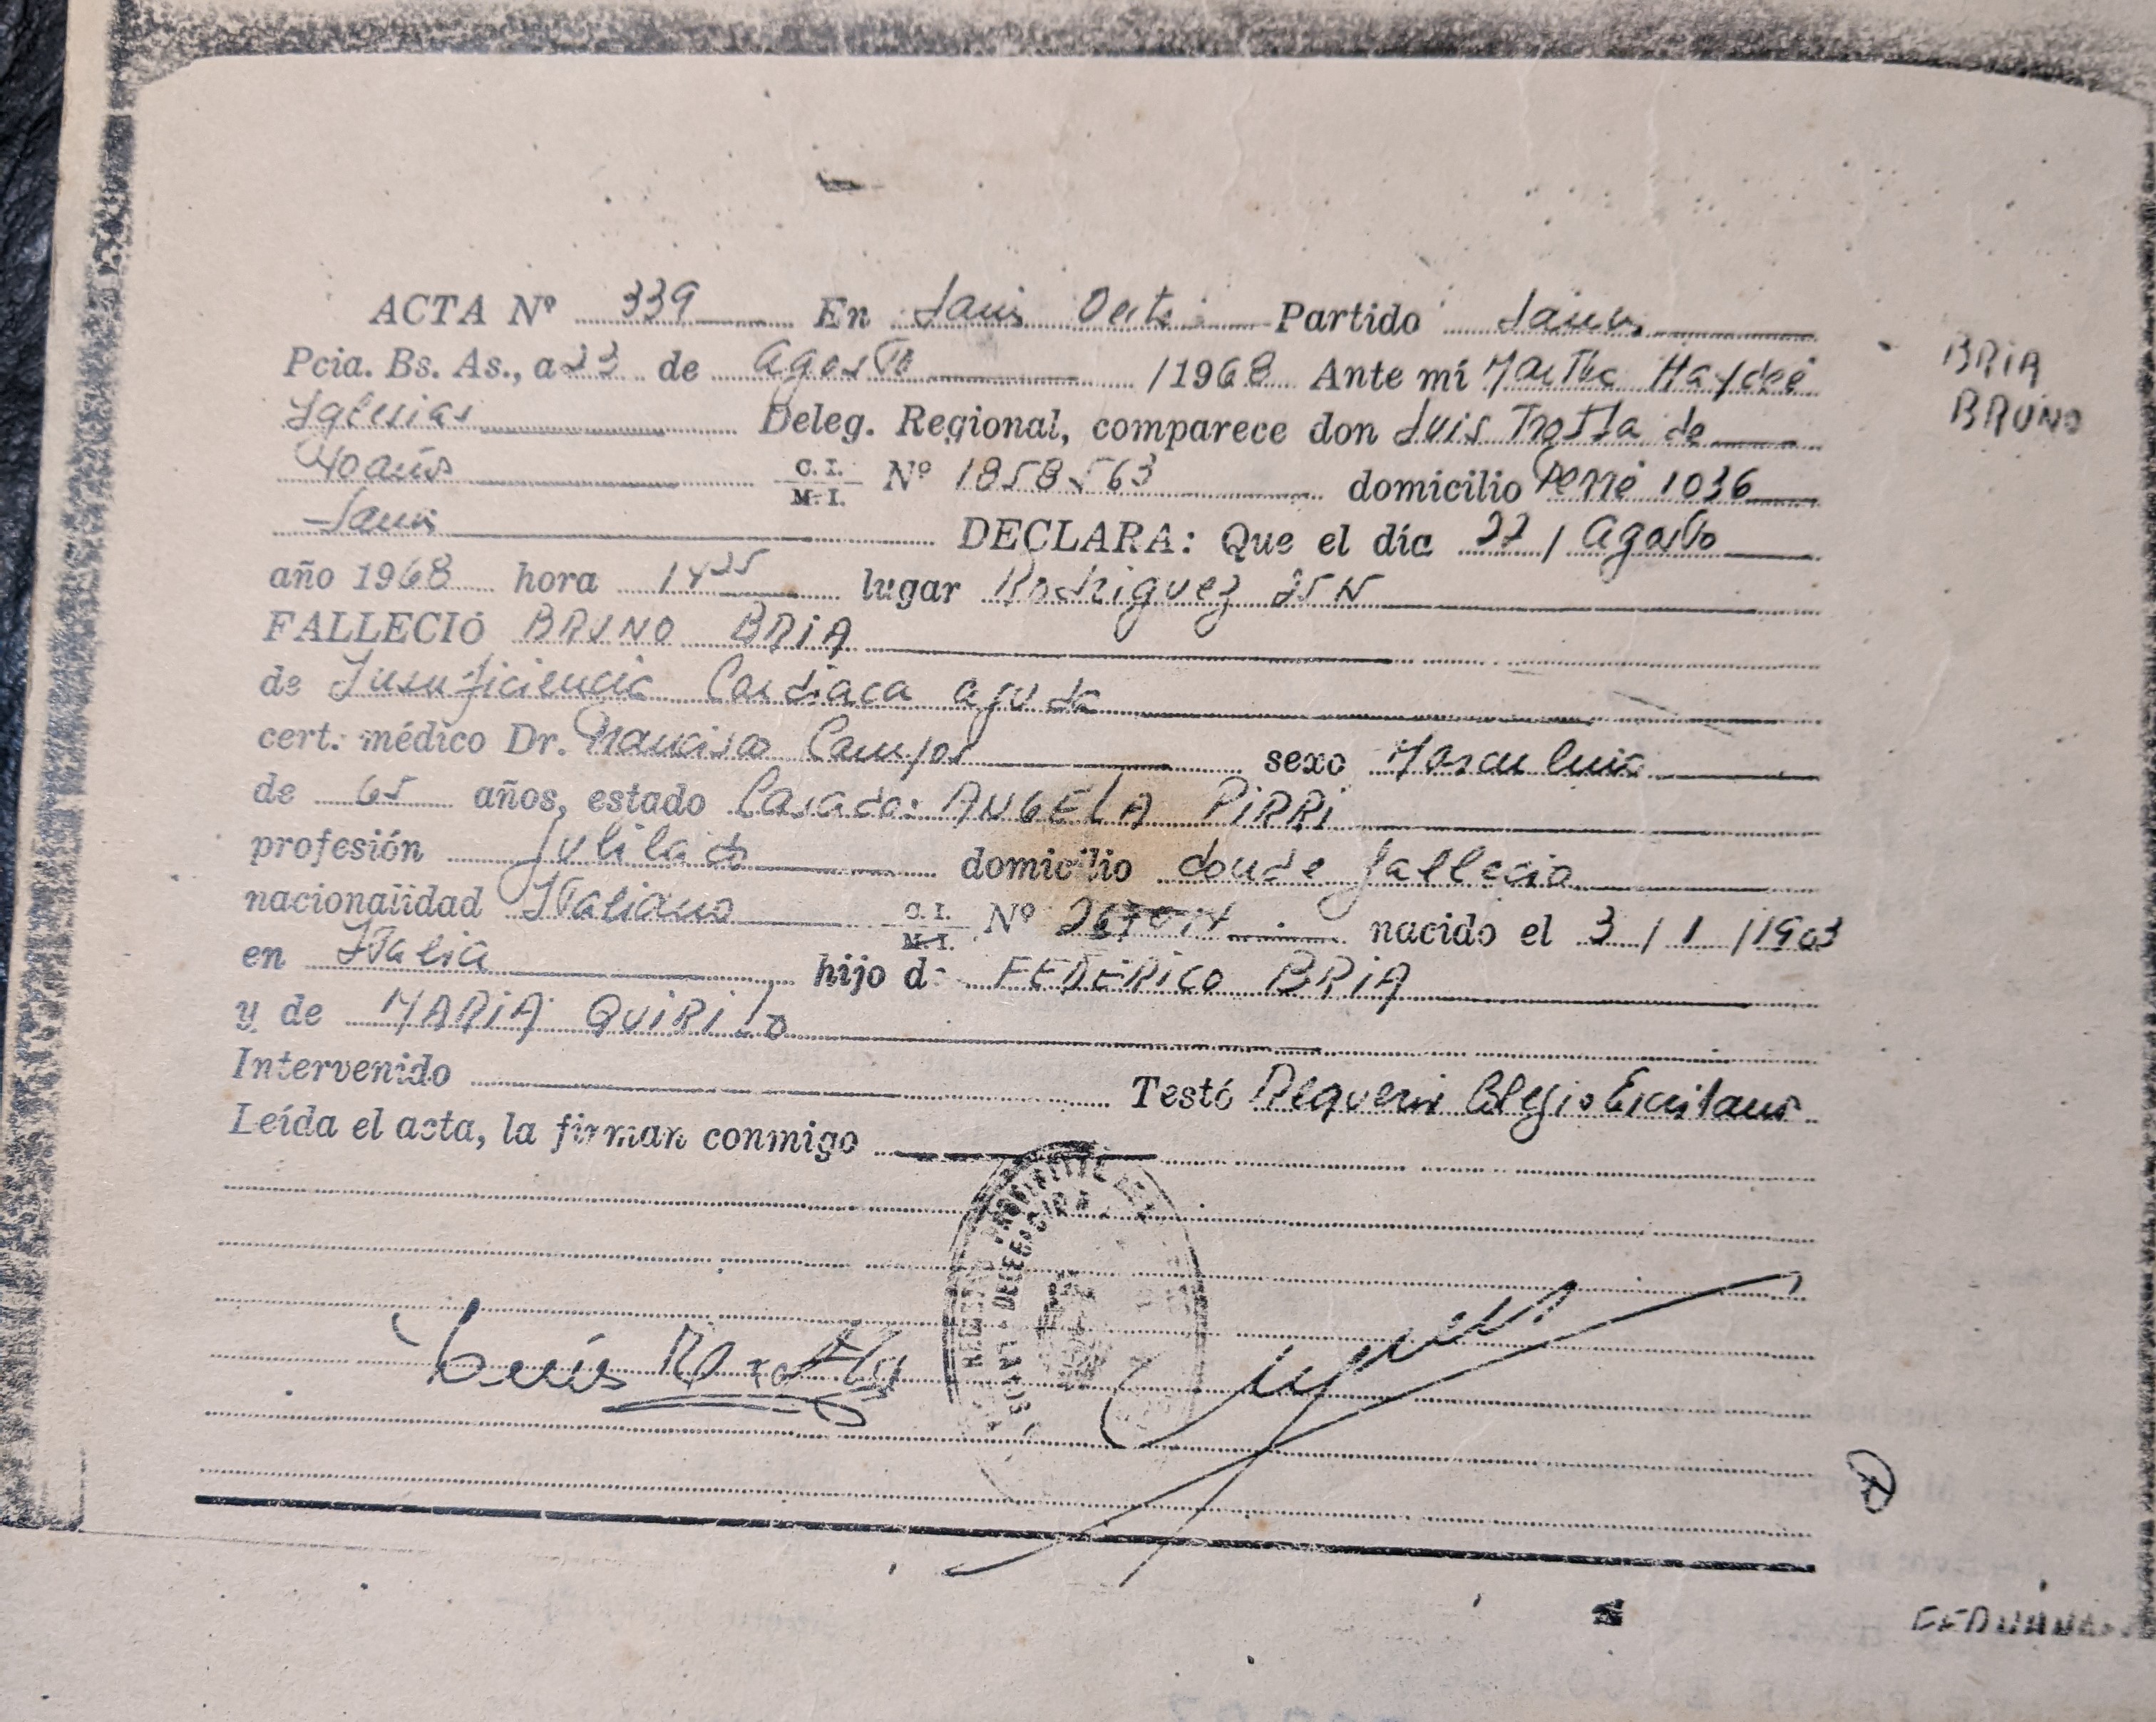 ACTA Nº 339 En Lanús Oeste Partido Lanús
BRIA
BRUNO
Pcia. Bs. As., a 23 de Agosto /1968 Ante mí Martha Haydeé
Iglesias Deleg. Regional, comparece don Luis Trotta de
40 años C. I. M. I. Nº 1858563 domicilio Ferré 1036
Lanús DECLARA: Que el día 22 / Agosto
año 1968 hora 14 25 lugar Rodriguez
FALLECIÓ BRUNO BRIA
de Insuficiencia Cardiaca aguda
cert. médico Dr. Francisco Campos sexo Masculino
de 65 años, estado Casado: ANGELA PIRRI
profesión Jubilado domicilio donde fallecio
nacionalidad Italiano C. I. M. I. Nº nacido el 3 / 1 /1903
en Italia hijo de FEDERICO BRIA
y de MARIA
Intervenido Testó Colegio Escribanos
Leída el acta, la firman conmigo
Luis